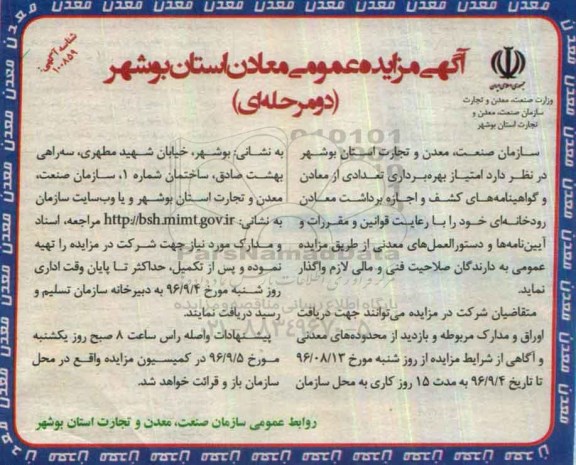 شناسه آگهی: ۱۰۰۸۵۹
جمهوری اسلامی ایران
وزارت صنعت، معدن و تجارت
سازمان صنعت، معدن و
تجارت استان بوشهر
آگهی مزایده عمومی معادن استان بوشهر
(دو مرحله‌ای)
سازمان صنعت، معدن و تجارت استان بوشهر
در نظر دارد امتیاز بهره‌برداری تعدادی از معادن
و گواهینامه‌های کشف و اجازه برداشت معادن
رودخانه‌ای خود را با رعایت قوانین و مقررات و
آیین‌نامه‌ها و دستورالعمل‌های معدنی از طریق مزایده
عمومی به دارندگان صلاحیت فنی و مالی لازم واگذار
نماید.
متقاضیان شرکت در مزایده می‌توانند جهت دریافت
اوراق و مدارک مربوطه و بازدید از محدوده‌های معدنی
و آگاهی از شرایط مزایده از روز شنبه مورخ ۹۶/۰۸/۱۳
تا تاریخ ۹۶/۹/۴ به مدت ۱۵ روز کاری به محل سازمان
به نشانی: بوشهر، خیابان شهید مطهری، سه‌راهی
بهشت صادق، ساختمان شماره ۱، سازمان صنعت،
معدن و تجارت استان بوشهر و یا وب‌سایت سازمان
به نشانی: http://bsh.mimt.gov.ir مراجعه، اسناد
و مدارک مورد نیاز جهت شرکت در مزایده را تهیه
نموده و پس از تکمیل، حداکثر تا پایان وقت اداری
روز شنبه مورخ ۹۶/۹/۴ به دبیرخانه سازمان تسلیم و
رسید دریافت نمایند.
پیشنهادات واصله راس ساعت ۸ صبح روز یکشنبه
مورخ ۹۶/۹/۵ در کمیسیون مزایده واقع در محل
سازمان باز و قرائت خواهد شد.
روابط عمومی سازمان صنعت، معدن و تجارت استان بوشهر
ParsNamadData
پایگاه اطلاع رسانی مناقصه و مزایده